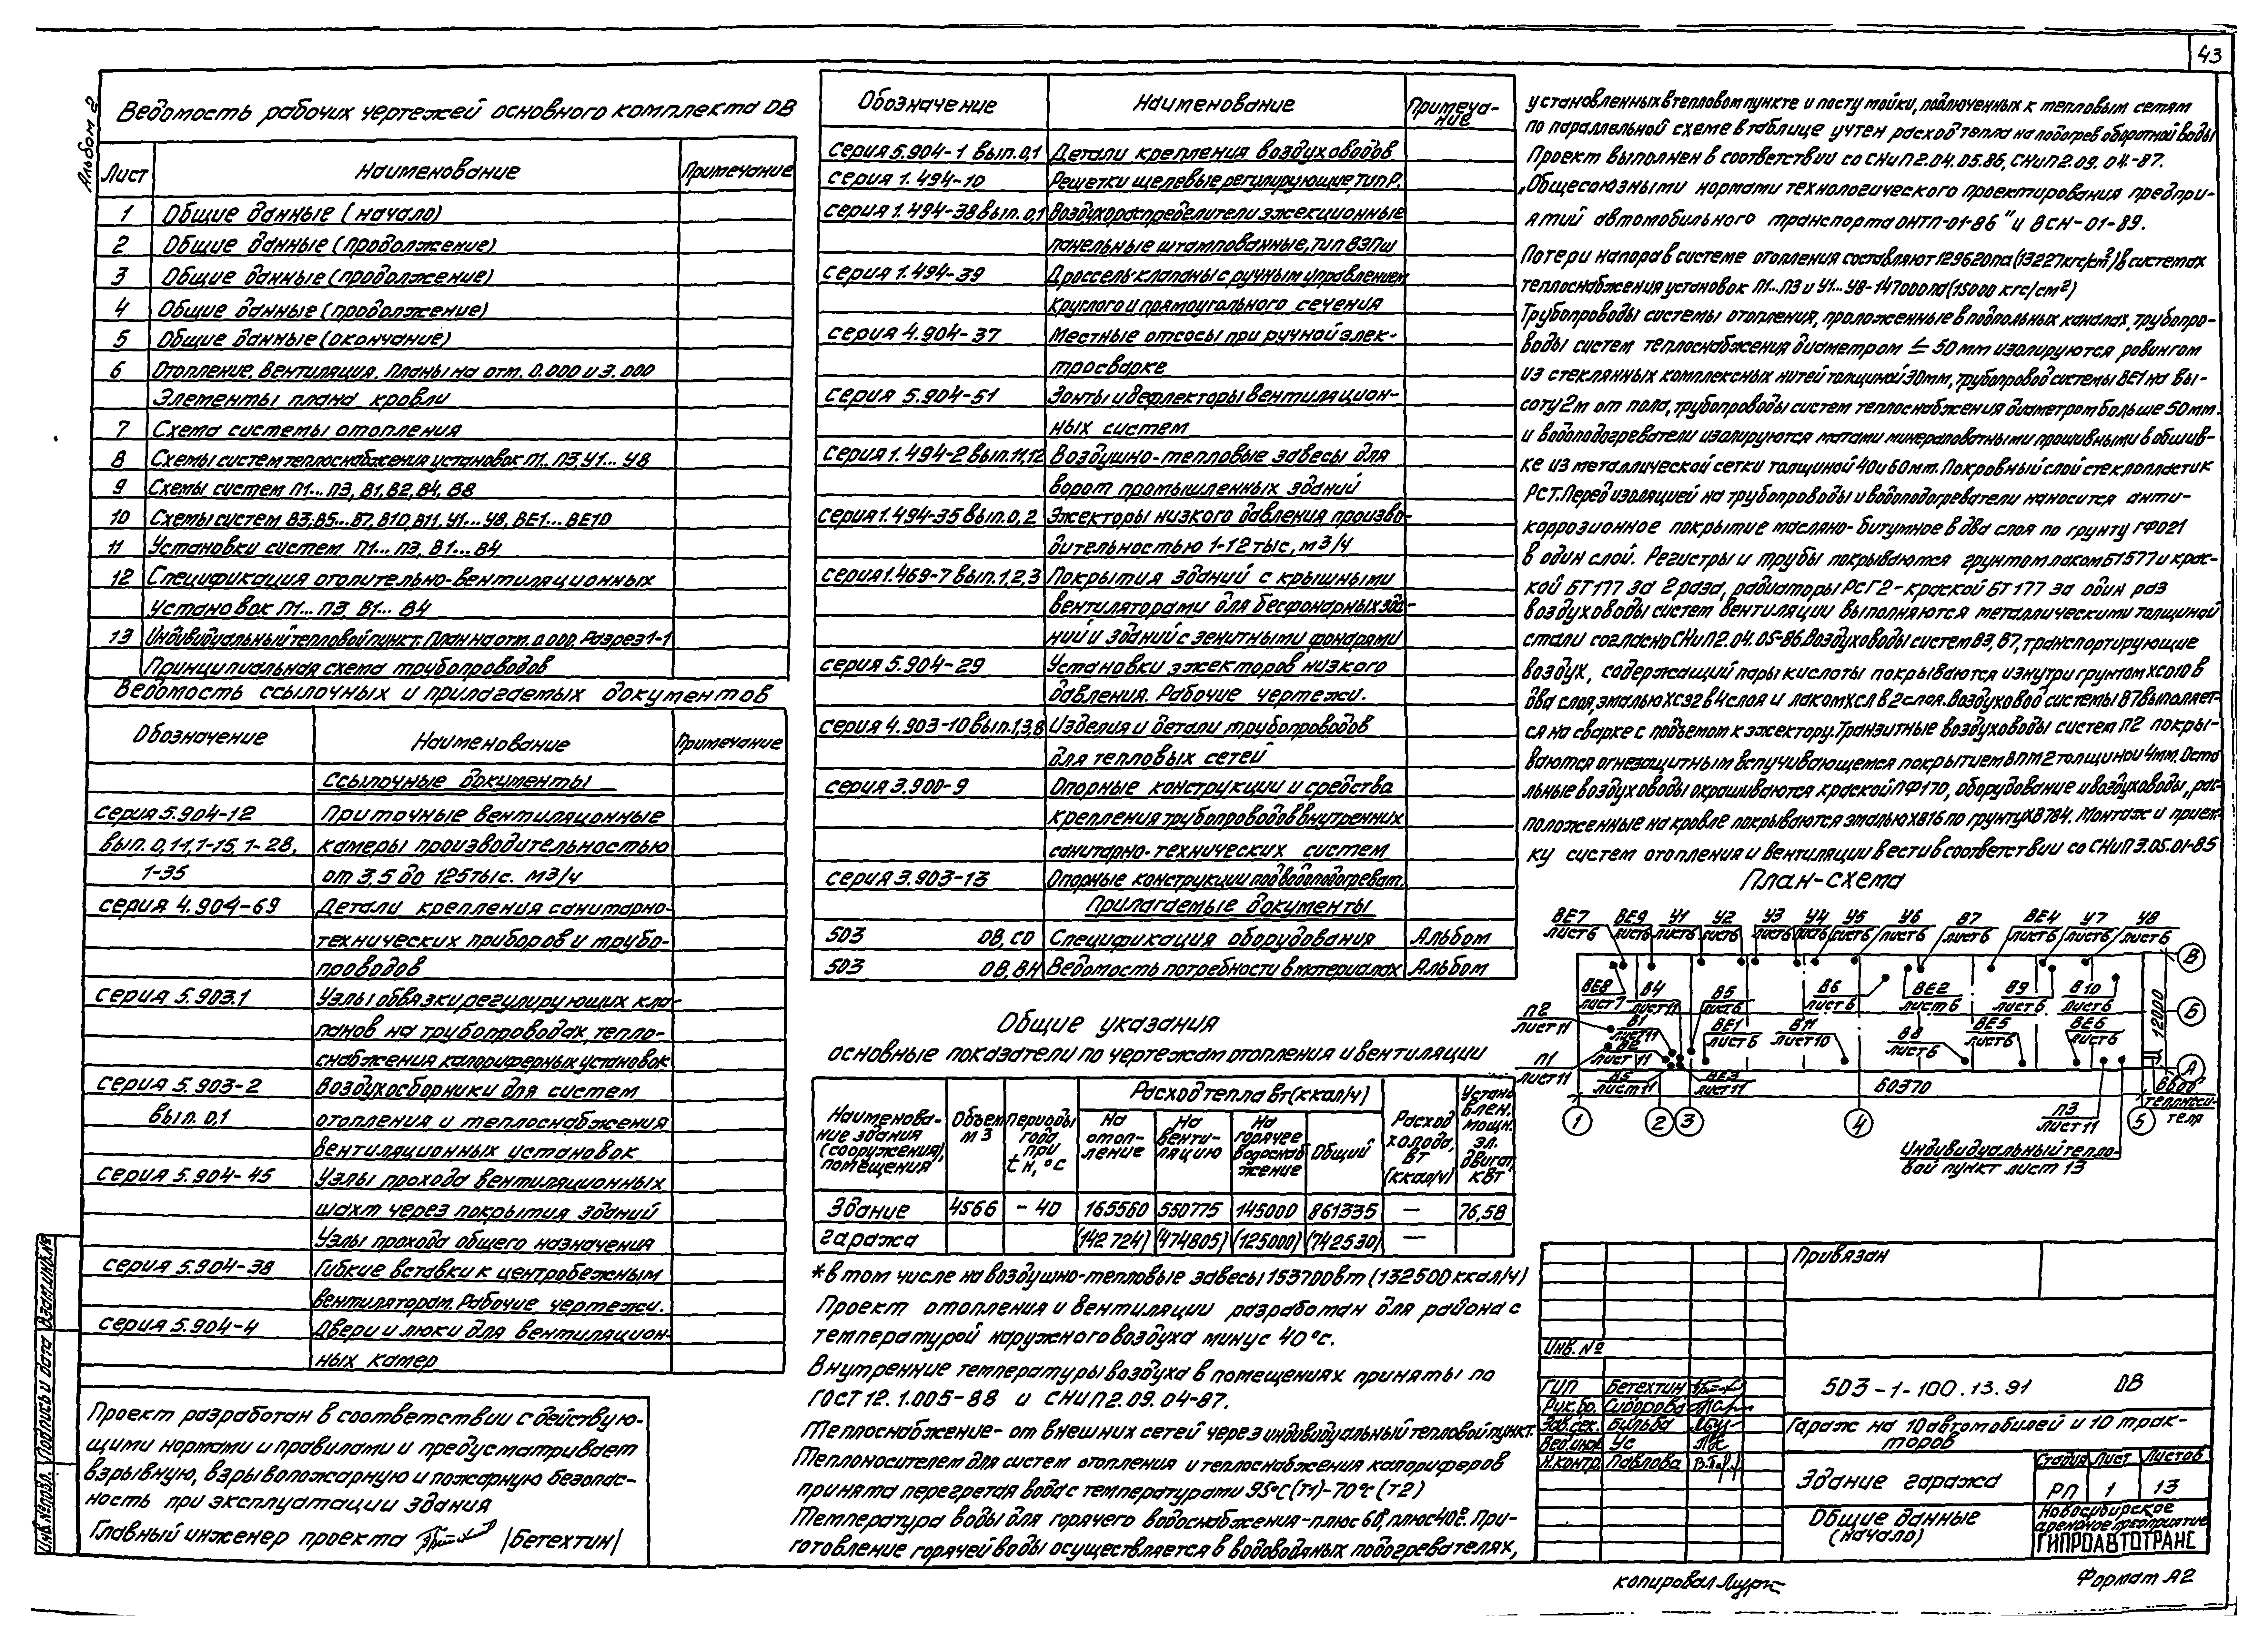 43
Альбом 2
Ведомость рабочих чертежей основного комплекта ОВ
Лист Наименование Примечание
1 Общие данные (начало)
2 Общие данные (продолжение)
3 Общие данные (продолжение)
4 Общие данные (продолжение)
5 Общие данные (окончание)
6 Отопление, вентиляция. Планы на отм. 0.000 и 3.000
Элементы плана кровли
7 Схема системы отопления
8 Схемы систем теплоснабжения установок П1...П3, У1... У8
9 Схемы систем П1...П3, В1, В2, В4, В8
10 Схемы систем В3, В5...В7, В10, В11, У1... У8, ВЕ1... ВЕ10
11 Установки систем П1... П3, В1... В4
12 Спецификация отопительно-вентиляционных
установок П1... П3, В1... В4
13 Индивидуальный тепловой пункт. План на отм. 0.000, Разрез 1-1
Принципиальная схема трубопроводов
Ведомость ссылочных и прилагаемых документов
Обозначение Наименование Примечание
Ссылочные документы
серия 5.904-12 Приточные вентиляционные
вып. 0,1-1,1-15, 1-28, камеры производительностью
1-35 от 3,5 до 125тыс. м3/ч
серия 4.904-69 Детали крепления санитарно-
технических приборов и трубо-
проводов
серия 5.903.1 Узлы обвязки регулирующих кла-
панов на трубопроводах, тепло-
снабжения калориферных установок
серия 5.903-2 Воздухосборники для систем
вып. 0,1 отопления и теплоснабжения
вентиляционных установок
серия 5.904-45 Узлы прохода вентиляционных
шахт через покрытия зданий
Узлы прохода общего назначения
серия 5.904-38 Гибкие вставки к центробежным
вентиляторам. Рабочие чертежи.
серия 5.904-4 Двери и люки для вентиляцион-
ных камер
Проект разработан в соответствии с действую-
щими нормами и правилами и предусматривает
взрывную, взрывопожарную и пожарную безопас-
ность при эксплуатации здания
Главный инженер проекта |Бетехтин|
Инв.№подл. Подпись и дата Взам.инв.№
Обозначение Наименование Примеча-
ние
серия 5.904-1 вып.0,1 Детали крепления воздуховодов
серия 1.494-10 Решетки щелевые, регулирующие тип Р.
серия 1.494-38 вып. 0,1 Воздухораспределители эжекционные
панельные штампованные, тип ВЭПш
серия 1.494-39 Дроссель-клапаны с ручным управлением
круглого и прямоугольного сечения
серия 4.904-37 Местные отсосы при ручной элек-
тросварке
серия 5.904-51 Зонты и дефлекторы вентиляцион-
ных систем
серия 1.494-2 вып.11,12 Воздушно-тепловые завесы для
ворот промышленных зданий
серия 1.494-35 вып.0,2 Эжекторы низкого давления произво-
дительностью 1-12 тыс, м3/ч
серия1.469-7 вып.1,2,3 Покрытия зданий с крышными
вентиляторами для бесфонарных зда-
ний и зданий с зенитными фонарями
серия 5.904-29 Установки эжекторов низкого
давления. Рабочие чертежи.
серия 4.903-10 вып.1,3,8 Изделия и детали трубопроводов
для тепловых сетей
серия 3.900-9 Опорные конструкции и средства
крепления трубопроводов внутренних
санитарно-технических систем
серия 3.903-13 Опорные конструкции под водоподогреват.
Прилагаемые документы
503 ОВ, СО Спецификация оборудования Альбом
503 ОВ, ВМ Ведомость потребности в материалах Альбом
Общие указания
основные показатели по чертежам отопления и вентиляции
Наименова-
ние здания
(сооружения),
помещения
Объем
м3
Периоды
года
при
tн, °С
Расход тепла Вт(ккал/ч)
На
отоп-
ление
На
венти-
ляцию
На
горячее
водоснаб
жение
Общий
Расход
холода,
Вт
(ккал/ч)
Устано
влен.
мощн.
эл.
двигат.
кВт
Здание 4566 -40 165560 550775 145000 861335 — 76,58
гаража (142724) (474805) (125000) (742530) —
*в том числе на воздушно-тепловые завесы 153700вт (132500 ккал/ч)
Проект отопления и вентиляции разработан для района с
температурой наружного воздуха минус 40°с.
Внутренние температуры воздуха в помещениях приняты по
ГОСТ 12.1.005-88 и СНиП2.09.04-87.
Теплоснабжение-от внешних сетей через индивидуальный тепловой пункт.
Теплоносителем для систем отопления и теплоснабжения калориферов
принята перегретая вода с температурами 95°С(Т1)-70°с (Т2)
Температура воды для горячего водоснабжения-плюс 60°, плюс40°с. При-
готовление горячей воды осуществляется в водоводяных подогревателях,
установленных в тепловом пункте и посту мойки, подключенных к тепловым сетям
по параллельной схеме в таблице учтен расход тепла на подогрев оборотной воды
Проект выполнен в соответствии со СНиП 2.04.05.86, СНиП2.09.04.-87.
„Общесоюзными нормами технологического проектирования предпри-
ятий автомобильного транспорта ОНТП-01-86" и ВСН-01-89.
Потери напора в системе отопления составляют 129620па (13227кгс/см²) в системах
теплоснабжения установок П1...П3 и У1...У8-147000па(15000 кгс/см²)
Трубопроводы системы отопления, проложенные в подпольных каналах, трубопро-
воды систем теплоснабжения диаметром ≤ 50мм изолируются ровингом
из стеклянных комплексных нитей толщиной 30мм, трубопровод системы ВЕ1 на вы-
соту 2м от пола, трубопроводы систем теплоснабжения диаметром больше 50мм.
и водоподогреватели изолируются матами минераловатными прошивными в обшив-
ке из металлической сетки толщиной 40и60мм. Покровный слой стеклопластик
РСТ. Перед изоляцией на трубопроводы и водоподогреватели наносится анти-
коррозионное покрытие масляно-битумное в два слоя по грунту ГФ021
в один слой. Регистры и трубы покрываются грунтом лаком БТ577 и крас-
кой БТ177 за 2 раза, радиаторы РСГ2-краской БТ177 за один раз
воздуховоды систем вентиляции выполняются металлическими толщиной
стали согласно СНиП2.04.05-86. Воздуховоды систем В3, В7, транспортирующие
воздух, содержащий пары кислоты покрываются изнутри грунтом ХС010 в
два слоя, эмалью ХС92 в 4слоя и лаком ХСЛ в 2слоя. Воздуховод системы В7 выполняет-
ся на сварке с подъемом к эжектору. Транзитные воздуховоды систем П2 покры-
ваются огнезащитным вспучивающемся покрытием ВПМ2 толщиной 4мм. Оста
льные воздуховоды окрашиваются краской ПФ170, оборудование и воздуховоды, рас-
положенные на кровле покрываются эмалью ХВ16 по грунту ХВ784. Монтаж и прием-
ку систем отопления и вентиляции вести в соответствии со СНиП 3.05.01-85
План-схема
ВЕ7 ВЕ9 У1 У2 У3 У4 У5 У6 В7 ВЕ4 У7 У8
лист6 лист6 лист6 лист6 лист6 лист6 лист6 лист6 лист6 лист6 лист6 лист6
ВЕ8 В4 В5 В6 ВЕ2 В9 В10
лист7 лист11 лист6 лист6 лист6 лист6 лист6
П2 В1 ВЕ1 В11 В8 ВЕ5 ВЕ6
лист11 лист11 лист6 лист10 лист6 лист6 лист6
П1 В2
лист11 лист11
В5 ВЕ3
лист11 лист11
60370 12000
В Б А
Ввод
теплоноси-
теля
1 2 3 4 5
П3
лист11
Индивидуальный тепло-
вой пункт лист 13
Привязан
Инв. №
ГИП Бетехтин
Рук.бр. Сидорова
Зав.сек. Бильба
Вед.инж Ус
Н.контр. Павлова
503-1-100.13.91 ОВ
Гараж на 10автомобилей и 10 трак-
торов
Здание гаража
Стадия Лист Листов
РП 1 13
Общие данные
(начало)
Новосибирское
арендное предприятие
ГИПРОАВТОТРАНС
копировал
Формат А2